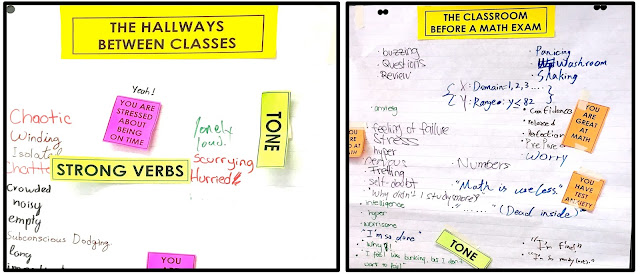 THE HALLWAYS
BETWEEN CLASSES
Yeah!
YOU ARE
STRESSED
ABOUT
BEING
ON TIME
TONE
Chaotic
Winding
Isolated
lonely
loud
Scurrying
Hurried
STRONG VERBS
Crowded
noisy
empty
Subconscious Dodging
long
YOU
THE CLASSROOM
BEFORE A MATH EXAM
· buzzing
· Questions
· Review
· Panicing
Washroom
· Shaking
X: Domain = 1, 2, 3 ....
Y: Range = y ≤ 82
· anxiety
· feeling of failure
· stress
· hyper
nervous
self-doubt
"Why didn't I study more?"
· intelligence
· hyper
· worrisome
· "I'm so done"
· Why?!
· I feel like
but I don't
want to fail
· confidence
· relieved
· Worry
· Numbers
· "Math is useless."
· "......" (Dead inside)
· "I'm fine!"
YOU
ARE
GREAT
AT
MATH
YOU HAVE
TEST
ANXIETY
TONE